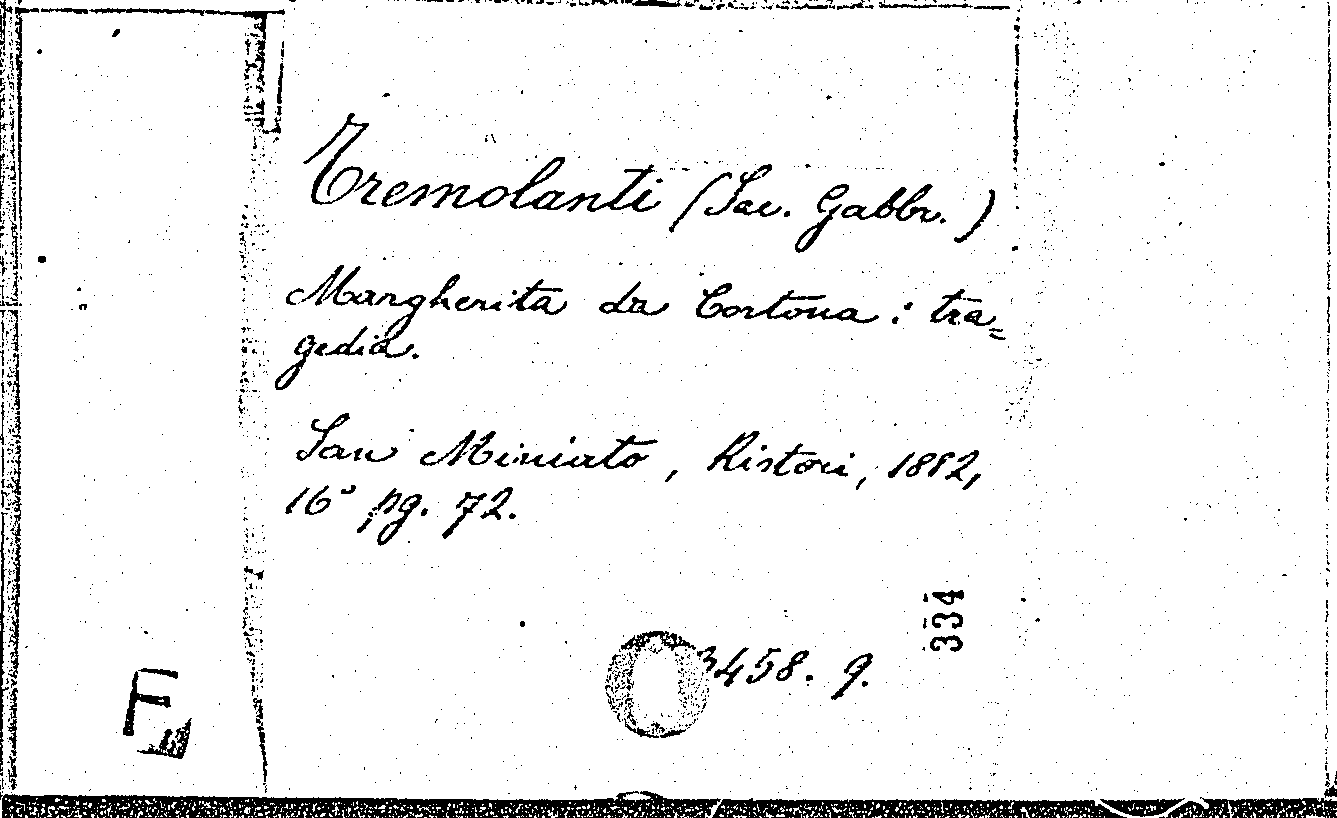 Tremolanti (Sac. Gabbr.)
Margherita da Cortona: tra=
gedia.
San Miniato, Ristori, 1882,
16° pg. 72.
334
3458. 9.
F